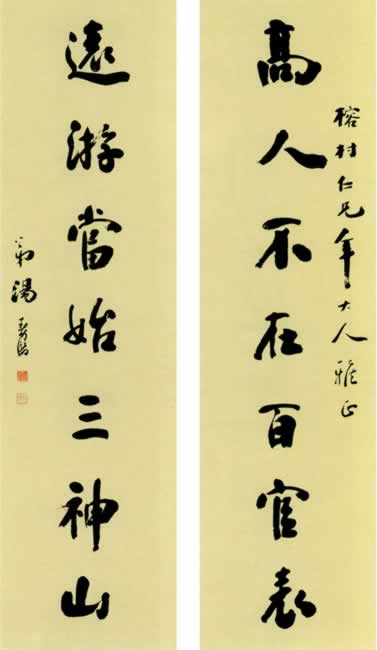 高人不在百官表
榕村仁兄年大人雅正
遠游當始三神山
弟湯壽潛